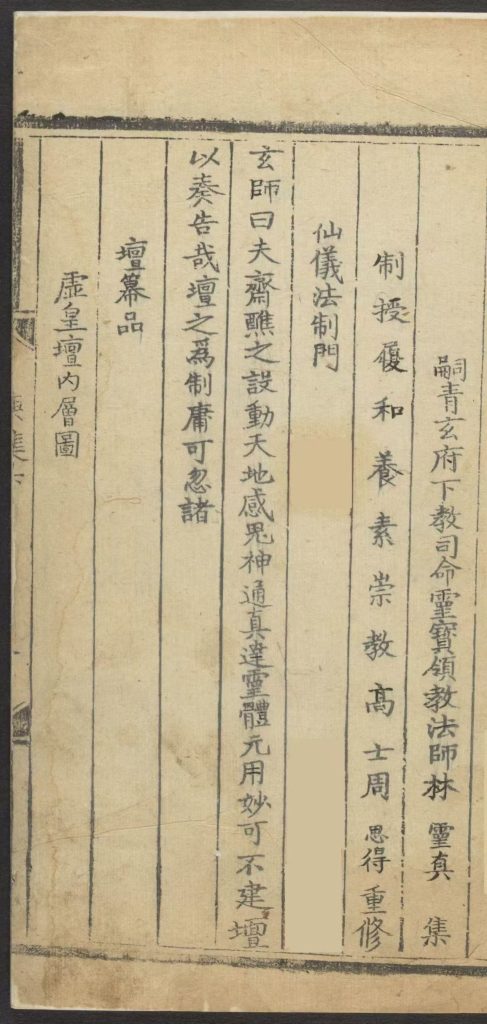 嗣青玄府下教司命靈寶領教法師林 靈真 集
制授履和養素崇教高士周 思得重修
仙儀法制門
玄師曰夫齋醮之設動天地感鬼神通真達靈體元用妙可不建壇
以奏告哉壇之爲制庸可忽諸
壇幕品
虛皇壇内層圖